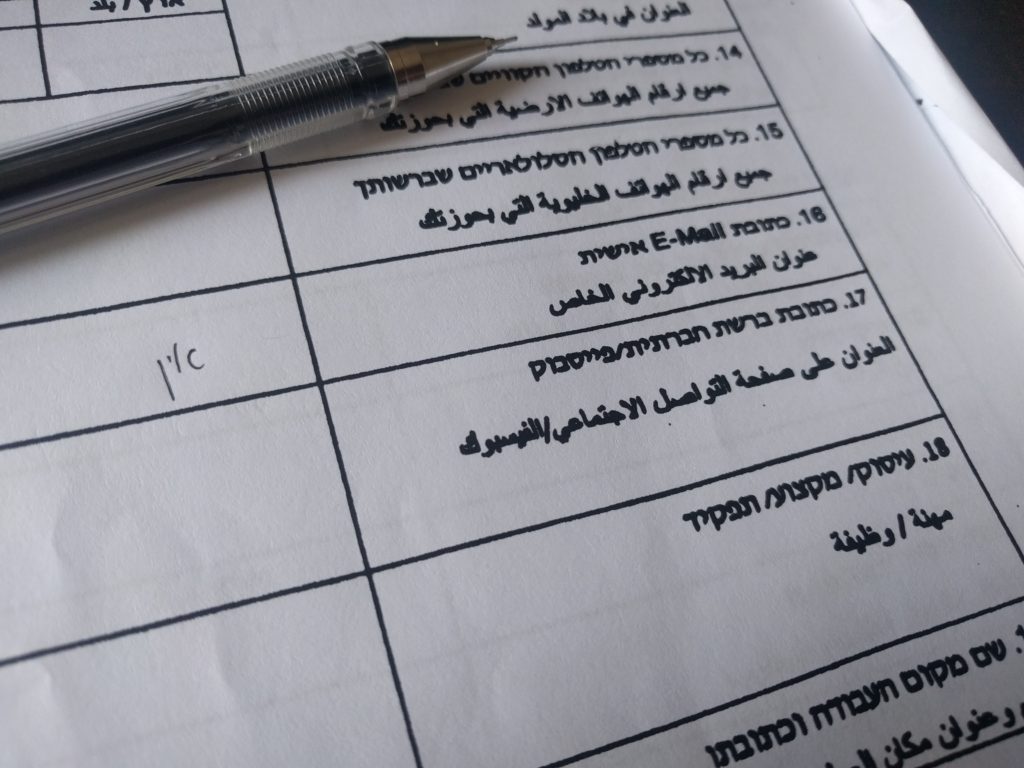 ארץ / בלד
العنوان في بلاد المولد
14. כל מספרי הטלפון הקוויים
جمع ارقام الهواتف الارضية التي بحوزتك
15. כל מספרי הטלפון הסלולאריים שברשותך
جمع ارقام الهواتف الخليوية التي بحوزتك
16. כתובת E-Mail אישית
عنوان البريد الالكتروني الخاص
17. כתובת ברשת חברתית/פייסבוק
العنوان على صفحة التواصل الاجتماعي/الفيسبوك
אין
18. עיסוק/ מקצוע/ תפקיד
مهنة / وظيفة
שם מקום העבודה וכתובתו
وعنوان مكان